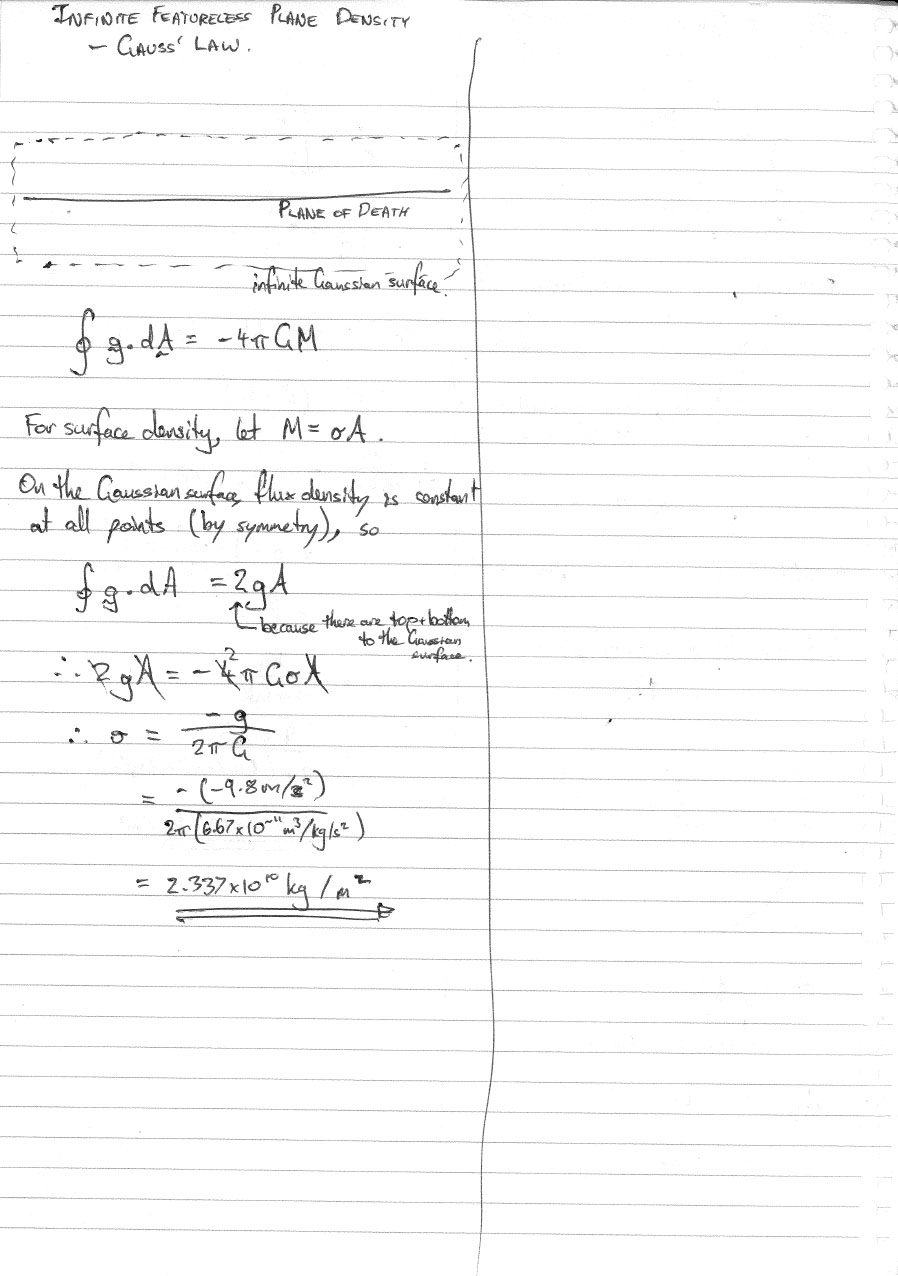 INFINITE FEATURELESS PLANE DENSITY
- GAUSS' LAW.
PLANE OF DEATH
infinite Gaussian surface.
∮ g · dA = -4π GM
For surface density, let M = σA.
On the Gaussian surface, flux density is constant
at all points (by symmetry), so
∮ g · dA = 2gA
because there are top + bottom
to the Gaussian
surface.
∴ 2gA = -4² π GσA
∴ σ = -g / 2π G
= -(-9.8 m/s²) / 2π(6.67×10⁻¹¹ m³/kg/s²)
= 2.337×10¹⁰ kg/m²